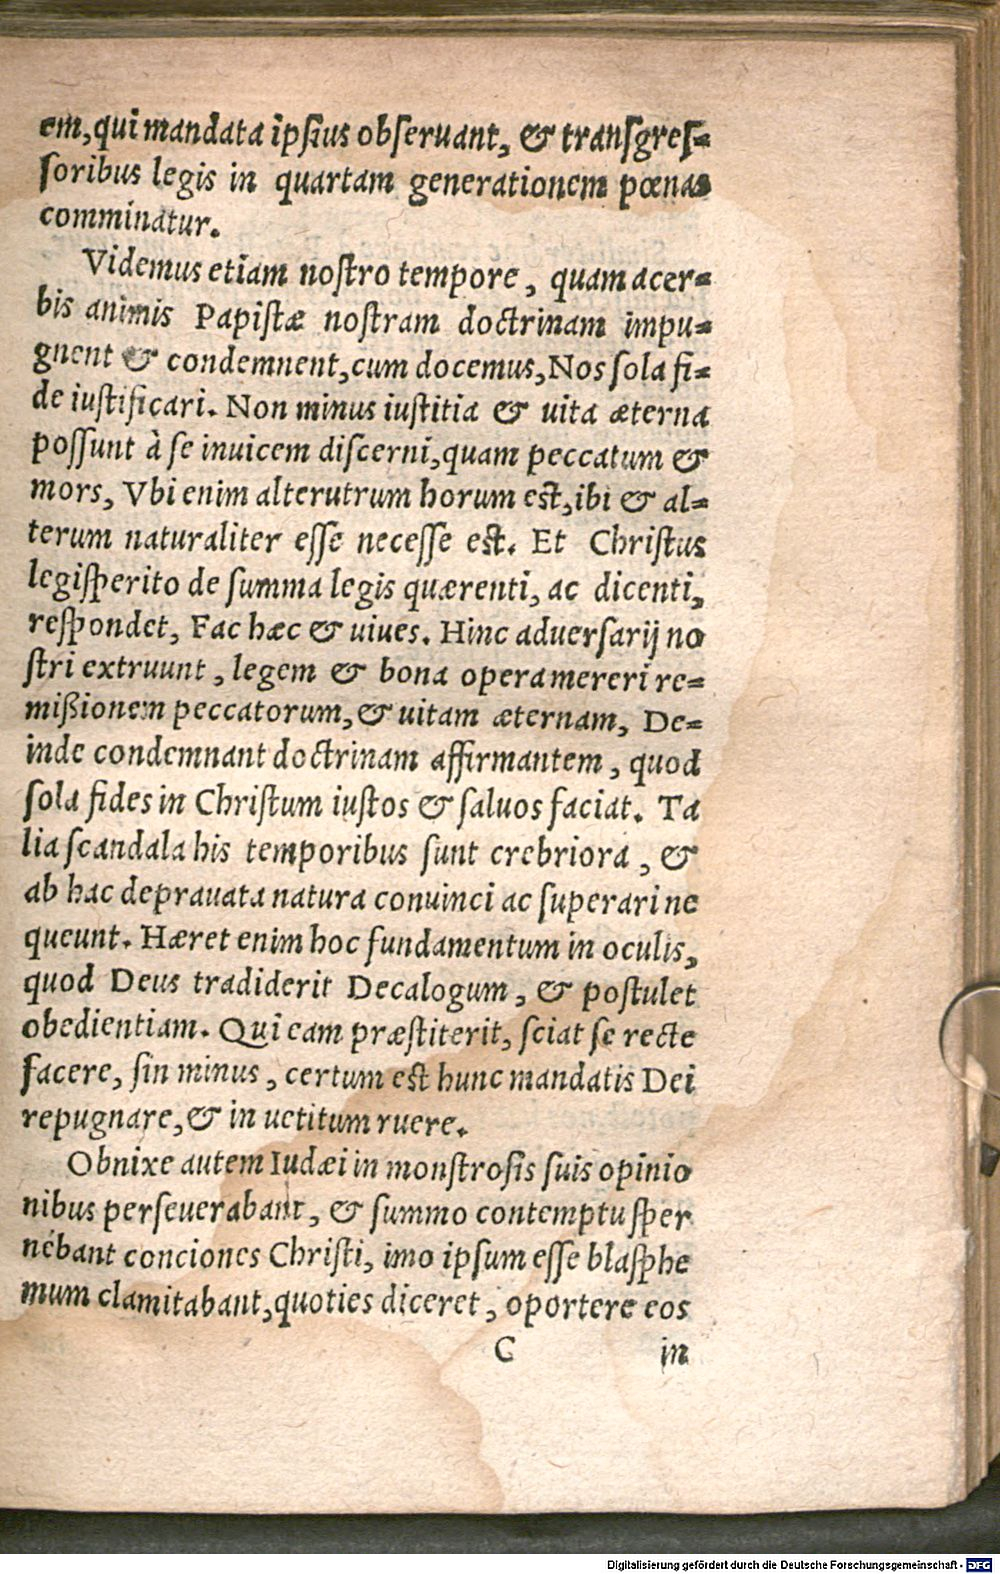 em, qui mandata ipsius obseruant, & transgres=
soribus legis in quartam generationem pœnas
comminatur.
Videmus etiam nostro tempore, quam acer=
bis animis Papistæ nostram doctrinam impu=
gnent & condemnent, cum docemus, Nos sola fi=
de iustificari. Non minus iustitia & uita æterna
possunt à se inuicem discerni, quam peccatum &
mors, Vbi enim alterutrum horum est, ibi & al=
terum naturaliter esse necesse est. Et Christus
legisperito de summa legis quærenti, ac dicenti,
respondet, Fac hæc & uiues. Hinc aduersarij no
stri extruunt, legem & bona opera mereri re=
mißionem peccatorum, & uitam æternam, De=
inde condemnant doctrinam affirmantem, quod
sola fides in Christum iustos & saluos faciat. Ta
lia scandala his temporibus sunt crebriora, &
ab hac deprauata natura conuinci ac superari ne
queunt. Hæret enim hoc fundamentum in oculis,
quod Deus tradiderit Decalogum, & postulet
obedientiam. Qui eam præstiterit, sciat se recte
facere, sin minus, certum est hunc mandatis Dei
repugnare, & in uetitum ruere.
Obnixe autem Iudæi in monstrosis suis opinio
nibus perseuerabant, & summo contemptu sper
nebant conciones Christi, imo ipsum esse blasphe
mum clamitabant, quoties diceret, oportere eos
C in
Digitalisierung gefördert durch die Deutsche Forschungsgemeinschaft - DFG